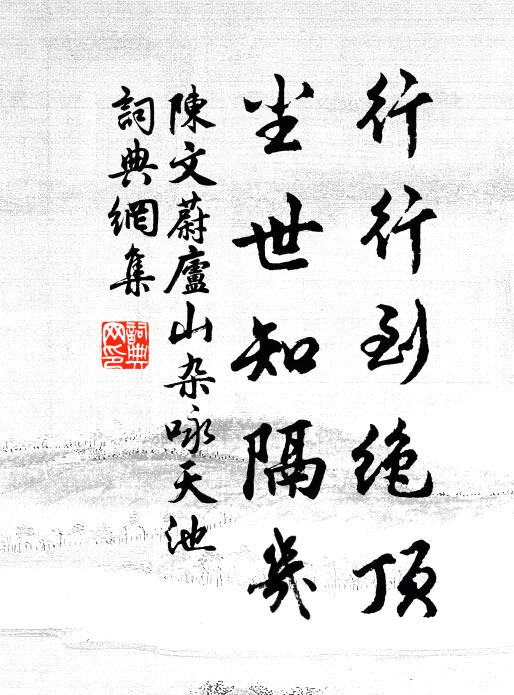 行行到绝顶
尘世知隔几
陳文蔚廬山杂咏天池
詞典網集
詞典
网印